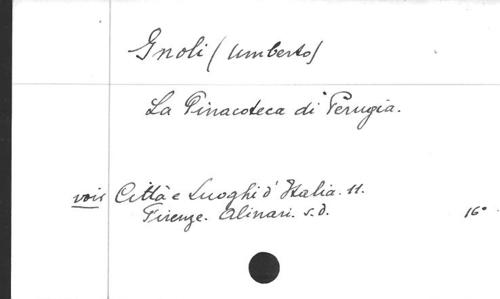 Gnoli (Umberto)
La Pinacoteca di Perugia.
voir Città e Luoghi d'Italia. 11.
Firenze. Alinari. s.d. 16°